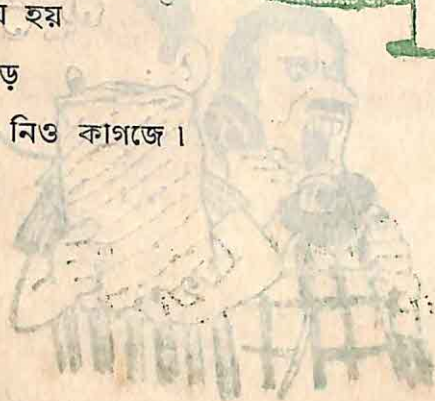 হয়
নিও কাগজে।